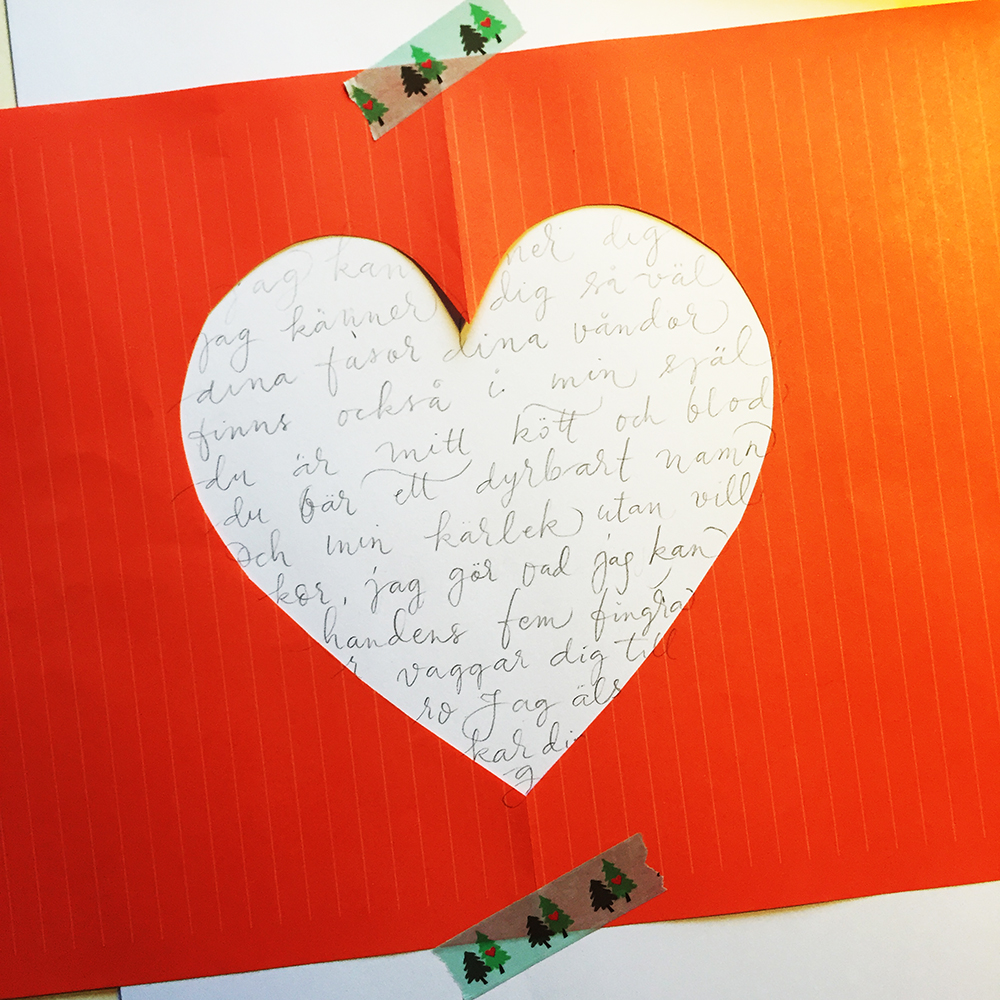 jag kan ner dig
jag känner dig så väl
dina fasor dina våndor
finns också i min själ
du är mitt kött och blod
du bär ett dyrbart namn
och min kärlek utan vill
kor, jag gör vad jag kan
handens fem fingra
r vaggar dig till
ro Jag äls
kar di
g